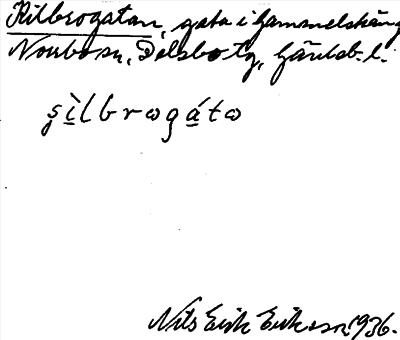 Kilbrogatan, gata i Gammelsträng
Norrbosn, Delsbo tg, Gävleb. l.
şìlbrωgátω
Nils Erik Eriksson 1936.